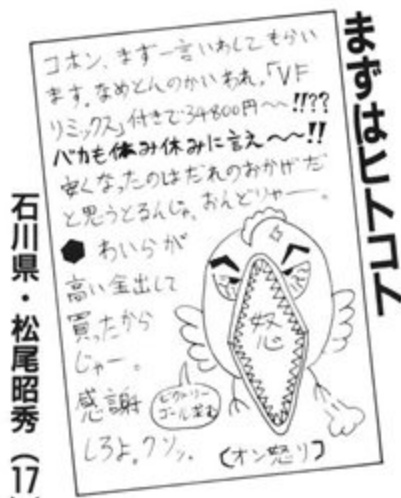 まずはヒトコト
コホン、まず一言いわしてもらい
ます。なめとんのかいわれ。「VF
リミックス」付きで34800円〜〜!!??
バカも休み休みに言え〜〜!!
安くなったのはだれのおかげだ
と思うとるんじゃ。おんどりゃー。
●わいらが
高い金出して
買ったから
じゃー。
感謝
しろよ。クソッ。
怒
ビクトリー
ゴール
(オン怒り)
石川県・松尾昭秀(17